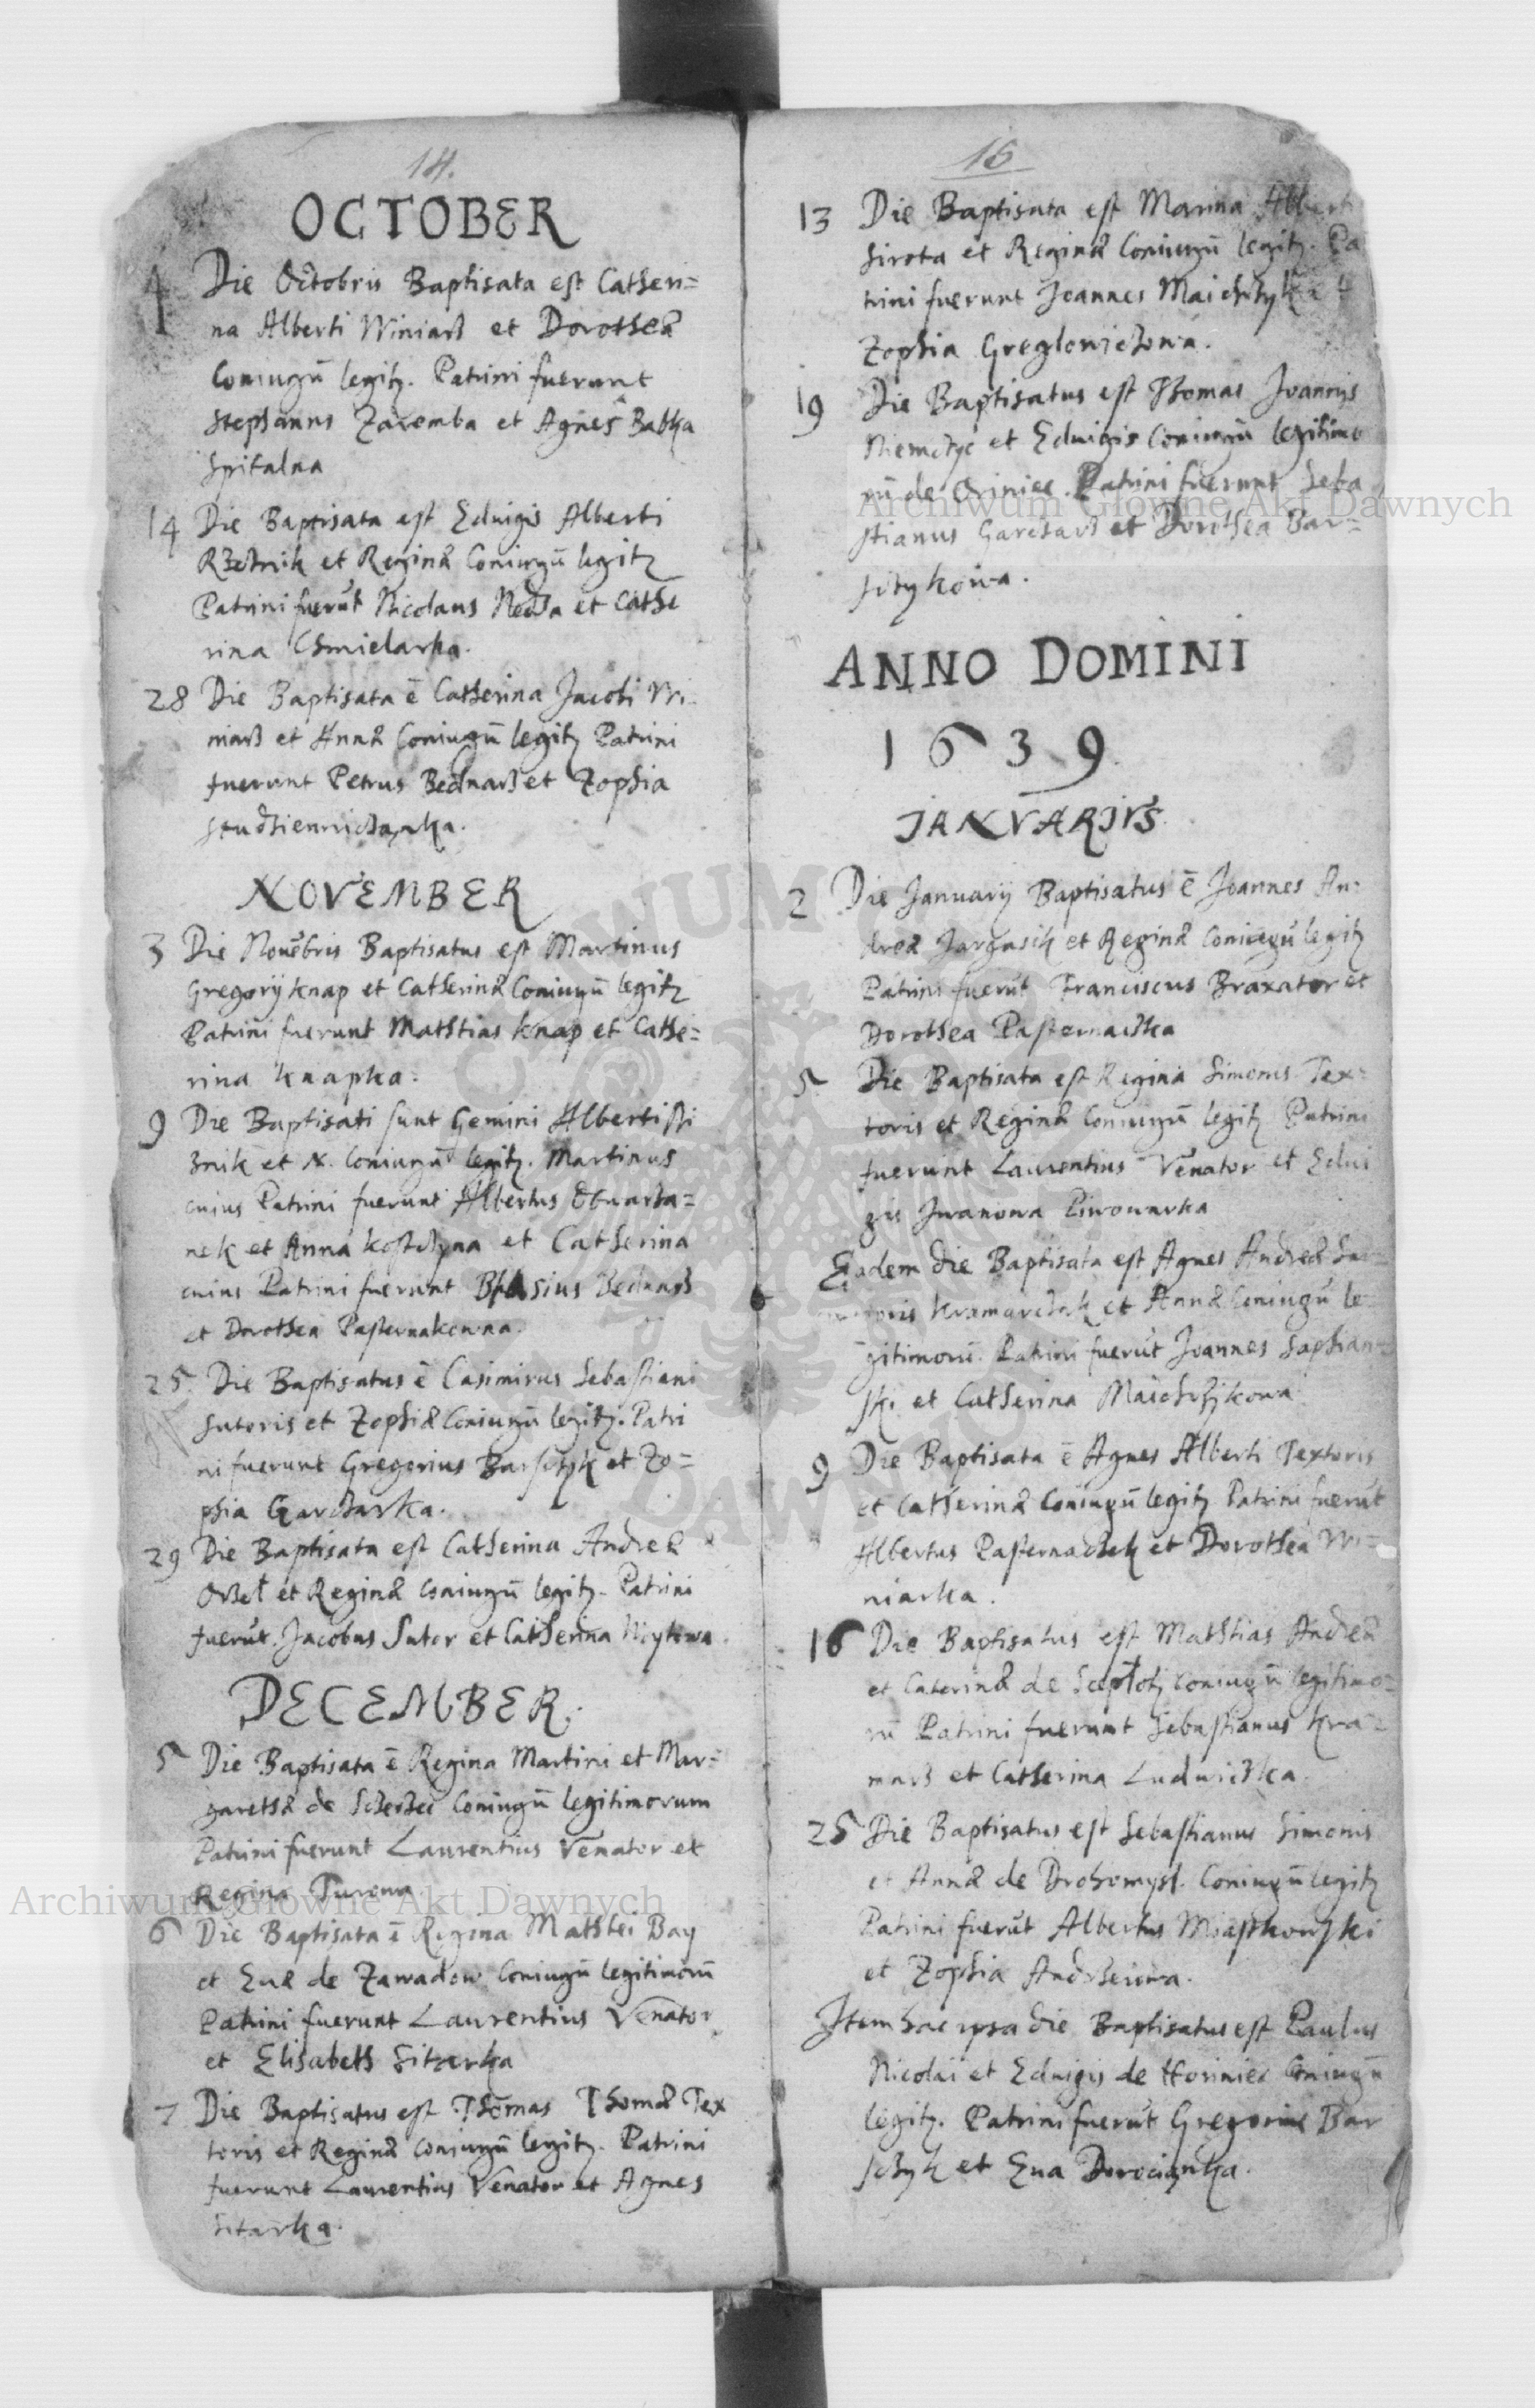 14.
OCTOBER
4 Die Octobris Baptisata est Catheri=
na Alberti Winiarz et Dorotheæ
Coniugū legitȝ. Patrini fuerunt
Stephanus Zaremba et Agnes Babka
Spitalna
14 Die Baptisata est Eduigis Alberti
Rzeznik et Reginæ Coniugū legitȝ
Patrini fuerūt Nicolaus et Cathe
rina Chmielarka.
28 Die Baptisata ē Catherina Jacobi Wi-
niarz et Annæ Coniugū legitȝ Patrini
fuerunt Petrus Bednarz et Zophia
NOVEMBER
3 Die Nouēbris Baptisatus est Martinus
Gregorij Knap et Catherinæ Coniugū legitȝ
Patrini fuerunt Matthias Knap et Cathe=
rina Knapka.
9 Die Baptisati sunt Gemini Alberti
et N. Coniugū legitȝ. Martinus
cuius Patrini fuerunt Albertus
nek et Anna et Catherina
cuius Patrini fuerunt Blasius Bednarz
et Dorothea Pasternakowna.
25. Die Baptisatus ē Casimirus Sebastiani
Sutoris et Zophiæ Coniugū legitȝ. Patri
ni fuerunt Gregorius Barsczyk et Zo=
phia Garczarka.
29 Die Baptisata est Catherina Andreæ
Orzeł et Reginæ Coniugū legitȝ. Patrini
fuerūt Jacobus Sutor et Catherina Woytowa.
DECEMBER.
5 Die Baptisata ē Regina Martini et Mar=
garethæ de Coniugū legitimorum
Patrini fuerunt Laurentius Venator et
Regina Turowa
6 Die Baptisata ē Regina Matthei Bay
et Euæ de Zawadow Coniugū legitimorū
Patrini fuerunt Laurentius Venator
et Elisabeth Sitarka
7 Die Baptisatus est Thomas Thomæ Tex
toris et Reginæ Coniugū legitȝ. Patrini
fuerunt Laurentius Venator et Agnes
Sitarka.
15
13 Die Baptisata est Marina Alberti
Sirota et Reginæ Coniugū legitȝ. Pa
trini fuerunt Joannes
Zophia Greglowiczowa.
19 Die Baptisatus est Thomas Joannis
Niemczyc et Eduigis Coniugū legitimo
rū de Patrini fuerunt Seba
stianus Garczarz et Dorothea Bar=
sczykowa.
ANNO DOMINI
1639.
JANVARIVS.
2 Die Januarij Baptisatus ē Joannes An=
dreæ et Reginæ Coniugū legitȝ
Patrini fuerūt Franciscus Braxator et
Dorothea Pasternaczka
5 Die Baptisata est Regina Simonis Tex=
toris et Reginæ Coniugū legitȝ Patrini
fuerunt Laurentius Venator et Edui
gis Iwanowa Piwowarka
Eadem die Baptisata est Agnes Andreæ
Kramarczyk et Annæ Coniugū le=
gitimorū. Patrini fuerūt Joannes Saphian=
ski et Catherina Maicherzikowa
9 Die Baptisata ē Agnes Alberti Textoris
et Catherinæ Coniugū legitȝ Patrini fuerūt
Albertus Pasternaczek et Dorothea Wi=
niarka.
16 Die Baptisatus est Matthias Andreæ
et Caterinæ de Coniugū legitimo=
rū Patrini fuerunt Sebastianus Kra=
marz et Catherina Ludwiczka.
25 Die Baptisatus est Sebastianus Simonis
et Annæ de Drohomysl. Coniugū legitȝ
Patrini fuerūt Albertus Miastkowski
et Zophia
Item hac ipsa die Baptisatus est Paulus
Nicolai et Eduigis de Horiniec Coniugū
legitȝ. Patrini fuerūt Gregorius Bar
sczyk et Eua Dorociąnka.
Archiwum Główne Akt Dawnych
Archiwum Główne Akt Dawnych